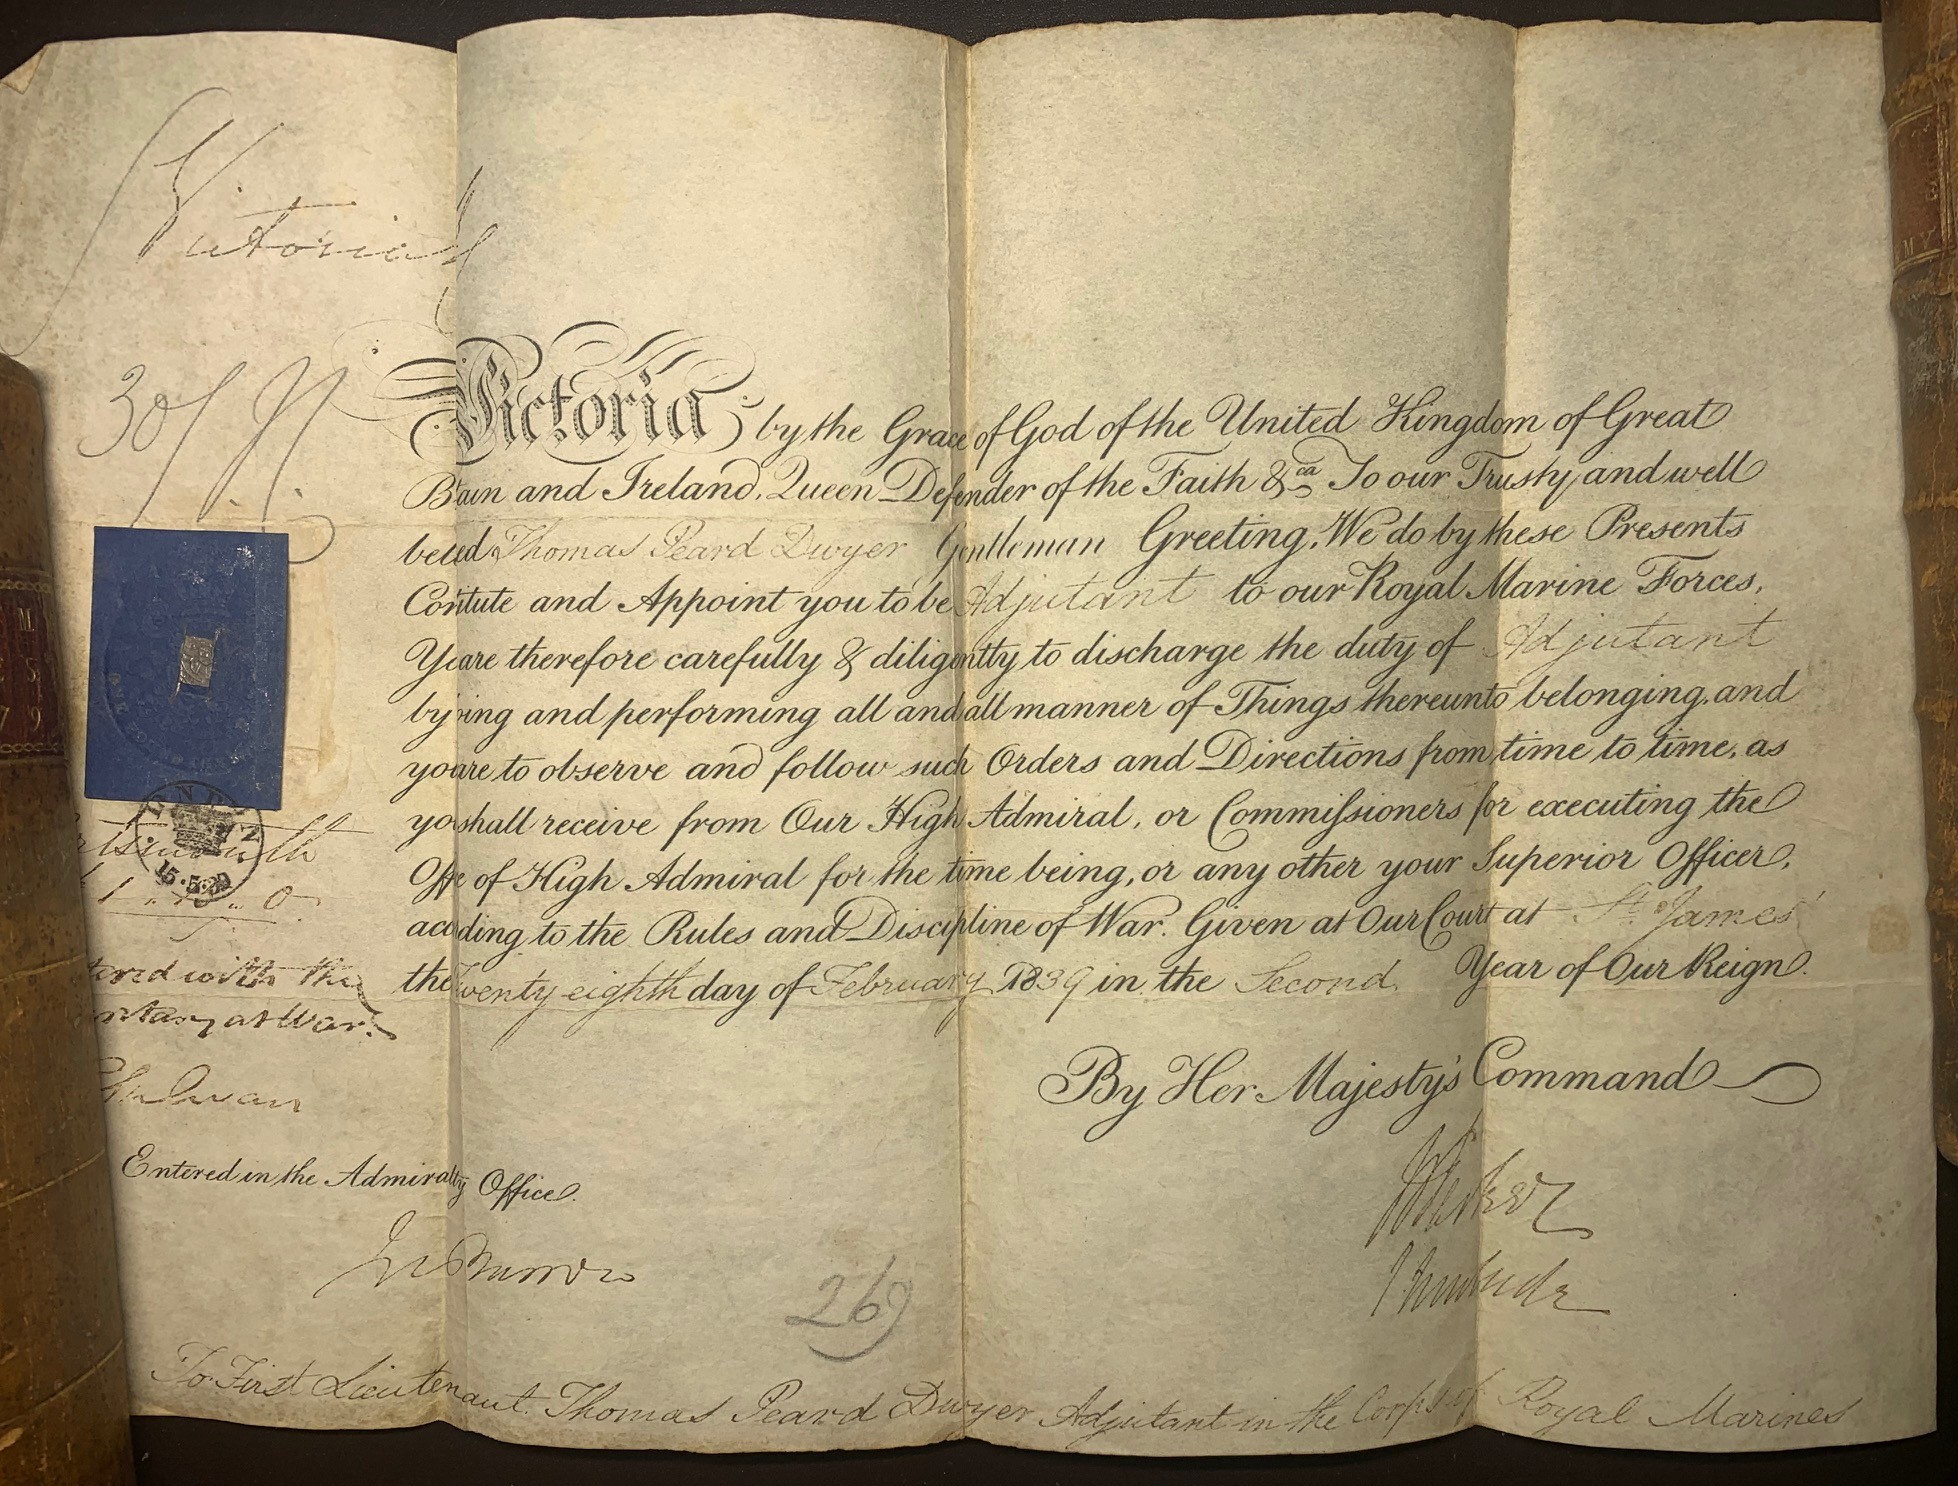 Victoria R
30/
Victoria by the Grace of God of the United Kingdom of Great
Btain and Ireland, Queen Defender of the Faith &ca To our Trusty and well
beled Thomas Peard Dwyer Gentleman Greeting, We do by these Presents
Contute and Appoint you to be Adjutant to our Royal Marine Forces,
You are therefore carefully & diligently to discharge the duty of Adjutant
by ing and performing all and all manner of Things thereunto belonging, and
you are to observe and follow such Orders and Directions from time to time, as
yo shall receive from Our High Admiral, or Commissioners for executing the
Offe of High Admiral for the time being, or any other your Superior Officer,
acc ding to the Rules and Discipline of War. Given at Our Court at St. James'
the Twenty eighth day of February 1839 in the Second Year of Our Reign.
By Her Majesty's Command
rtsmouth
15.5.
1 .. 0
tered with the
retary at War.
Entered in the Admiralty Office.
Jn Barrow
269
To First Lieutenant Thomas Peard Dwyer Adjutant in the Corps of Royal Marines